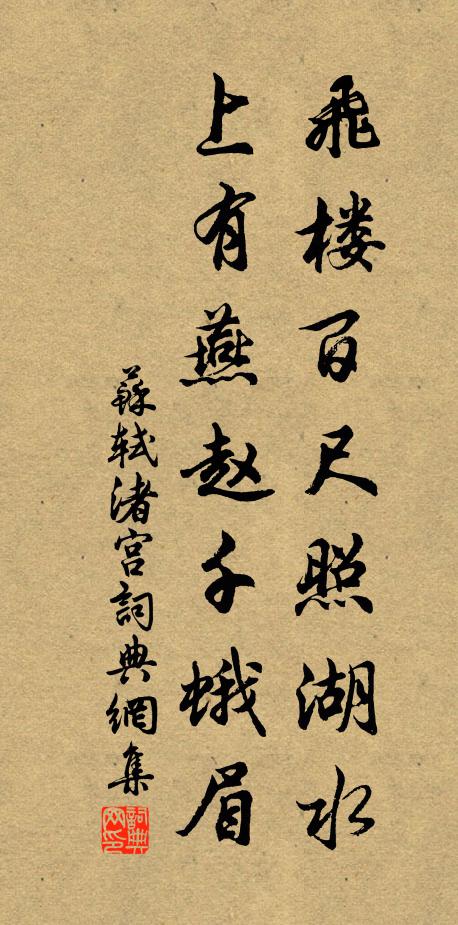 飛楼百尺照湖水
上有燕赵千蛾眉
蘇軾渚宫詞典網集
詞典网印